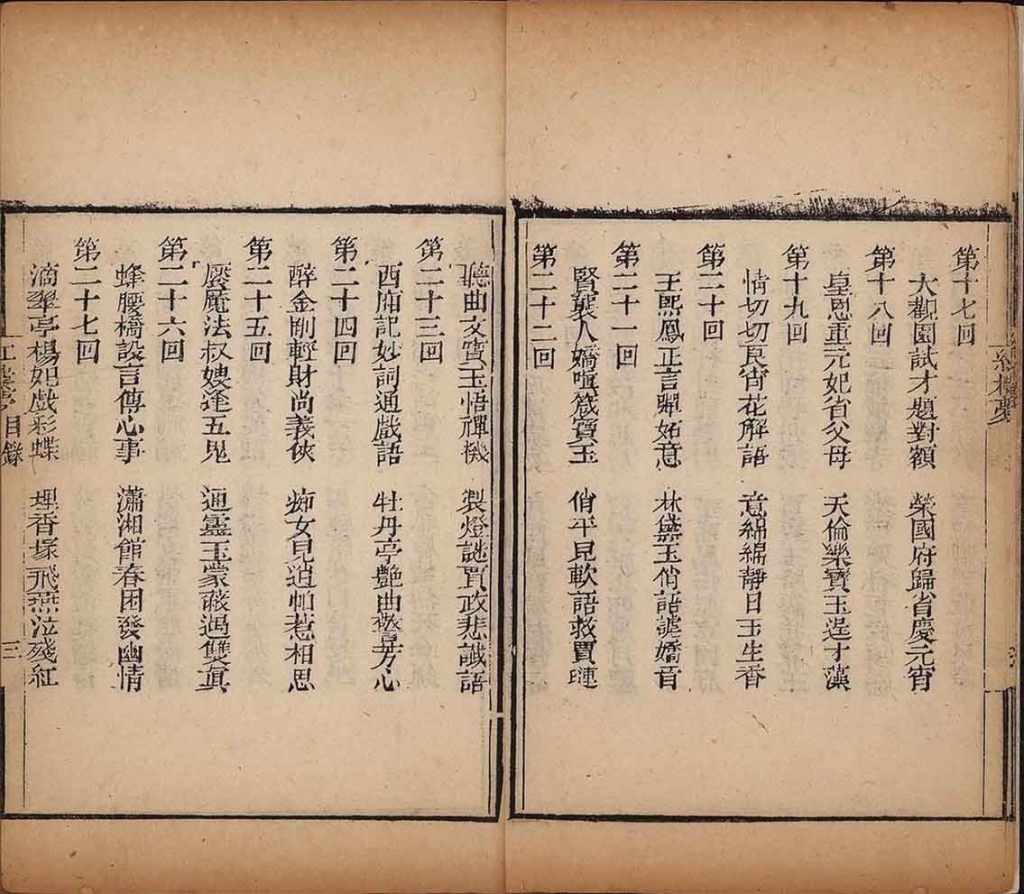 紅樓夢
第十七回
大觀園試才題對額 榮國府歸省慶元宵
第十八回
皇恩重元妃省父母 天倫樂寶玉逞才藻
第十九回
情切切良宵花解語 意綿綿靜日玉生香
第二十回
王熙鳳正言彈妬意 林黛玉俏語謔嬌音
第二十一回
賢襲人嬌嗔箴寶玉 俏平兒軟語救賈璉
第二十二回
聽曲文寶玉悟禪機 製燈謎賈政悲讖語
第二十三回
西廂記妙詞通戲語 牡丹亭艷曲警芳心
第二十四回
醉金剛輕財尚義俠 痴女兒遺帕惹相思
第二十五回
魘魔法叔嫂逢五鬼 通靈玉蒙蔽遇雙真
第二十六回
蜂腰橋設言傳心事 瀟湘館春困發幽情
第二十七回
滴翠亭楊妃戲彩蝶 埋香塚飛燕泣殘紅
目錄 三